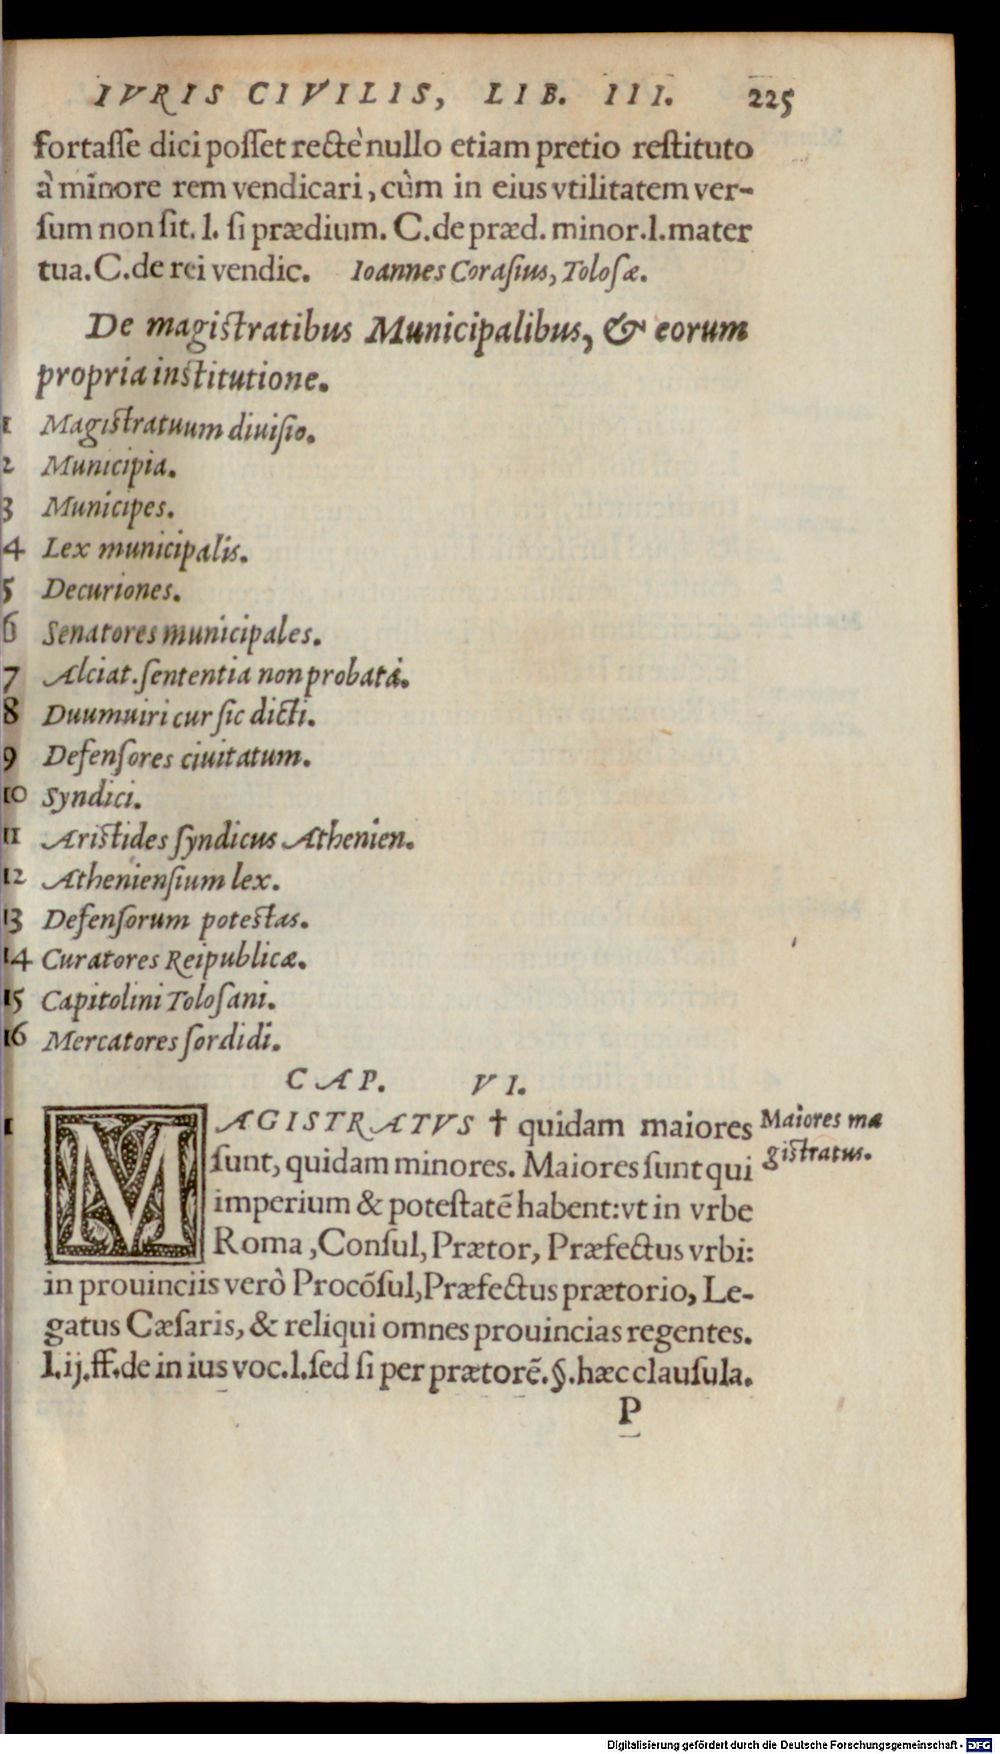 IVRIS CIVILIS, LIB. III. 225
fortaſſe dici poſſet rectè nullo etiam pretio reſtituto
à minore rem vendicari, cùm in eius vtilitatem ver-
ſum non ſit. l. ſi prædium. C. de præd. minor. l. mater
tua. C. de rei vendic. Ioannes Coraſius, Toloſæ.
De magiſtratibus Municipalibus, & eorum
propria inſtitutione.
1 Magiſtratuum diuiſio.
2 Municipia.
3 Municipes.
4 Lex municipalis.
5 Decuriones.
6 Senatores municipales.
7 Alciat. ſententia non probata.
8 Duumuiri cur ſic dicti.
9 Defenſores ciuitatum.
10 Syndici.
11 Ariſtides ſyndicus Athenien.
12 Athenienſium lex.
13 Defenſorum poteſtas.
14 Curatores Reipublicæ.
15 Capitolini Toloſani.
16 Mercatores ſordidi.
CAP. VI.
1 MAGISTRATVS † quidam maiores
ſunt, quidam minores. Maiores ſunt qui
imperium & poteſtatē habent: vt in vrbe
Roma, Conſul, Prætor, Præfectus vrbi:
in prouinciis verò Procōſul, Præfectus prætorio, Le-
gatus Cæſaris, & reliqui omnes prouincias regentes.
l. ij. ff. de in ius voc. l. ſed ſi per prætorē. §. hæc clauſula.
Maiores ma
giſtratus.
P
Digitalisierung gefördert durch die Deutsche Forschungsgemeinschaft - DFG